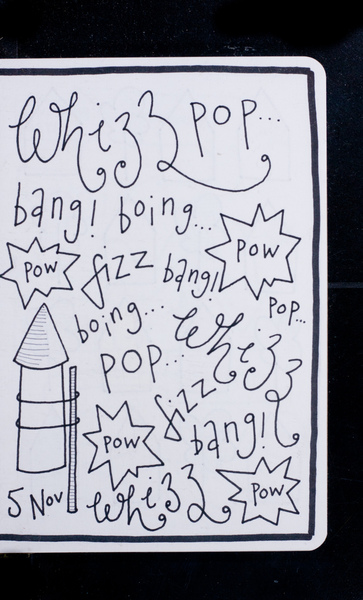 Whizz pop...
bang! boing...
pow
pow
fizz bang!
boing...
pop...
Whizz
pop...
fizz
bang!
pow
5 Nov
whizz
pow